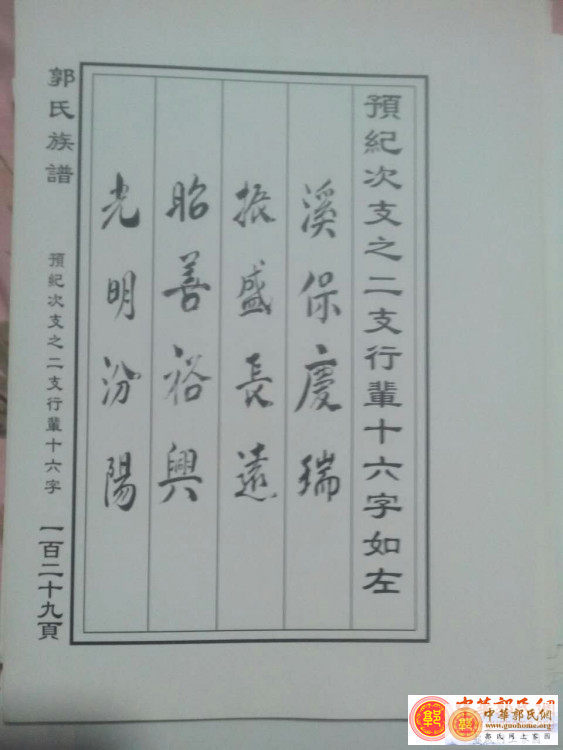 預紀次支之二支行輩十六字如左
溪保慶瑞
振盛長遠
昭善裕興
光明汾陽
郭氏族譜
預紀次支之二支行輩十六字
一百二十九頁
中華郭氏網
中華郭氏網
www.guohome.org
郭氏网上家园